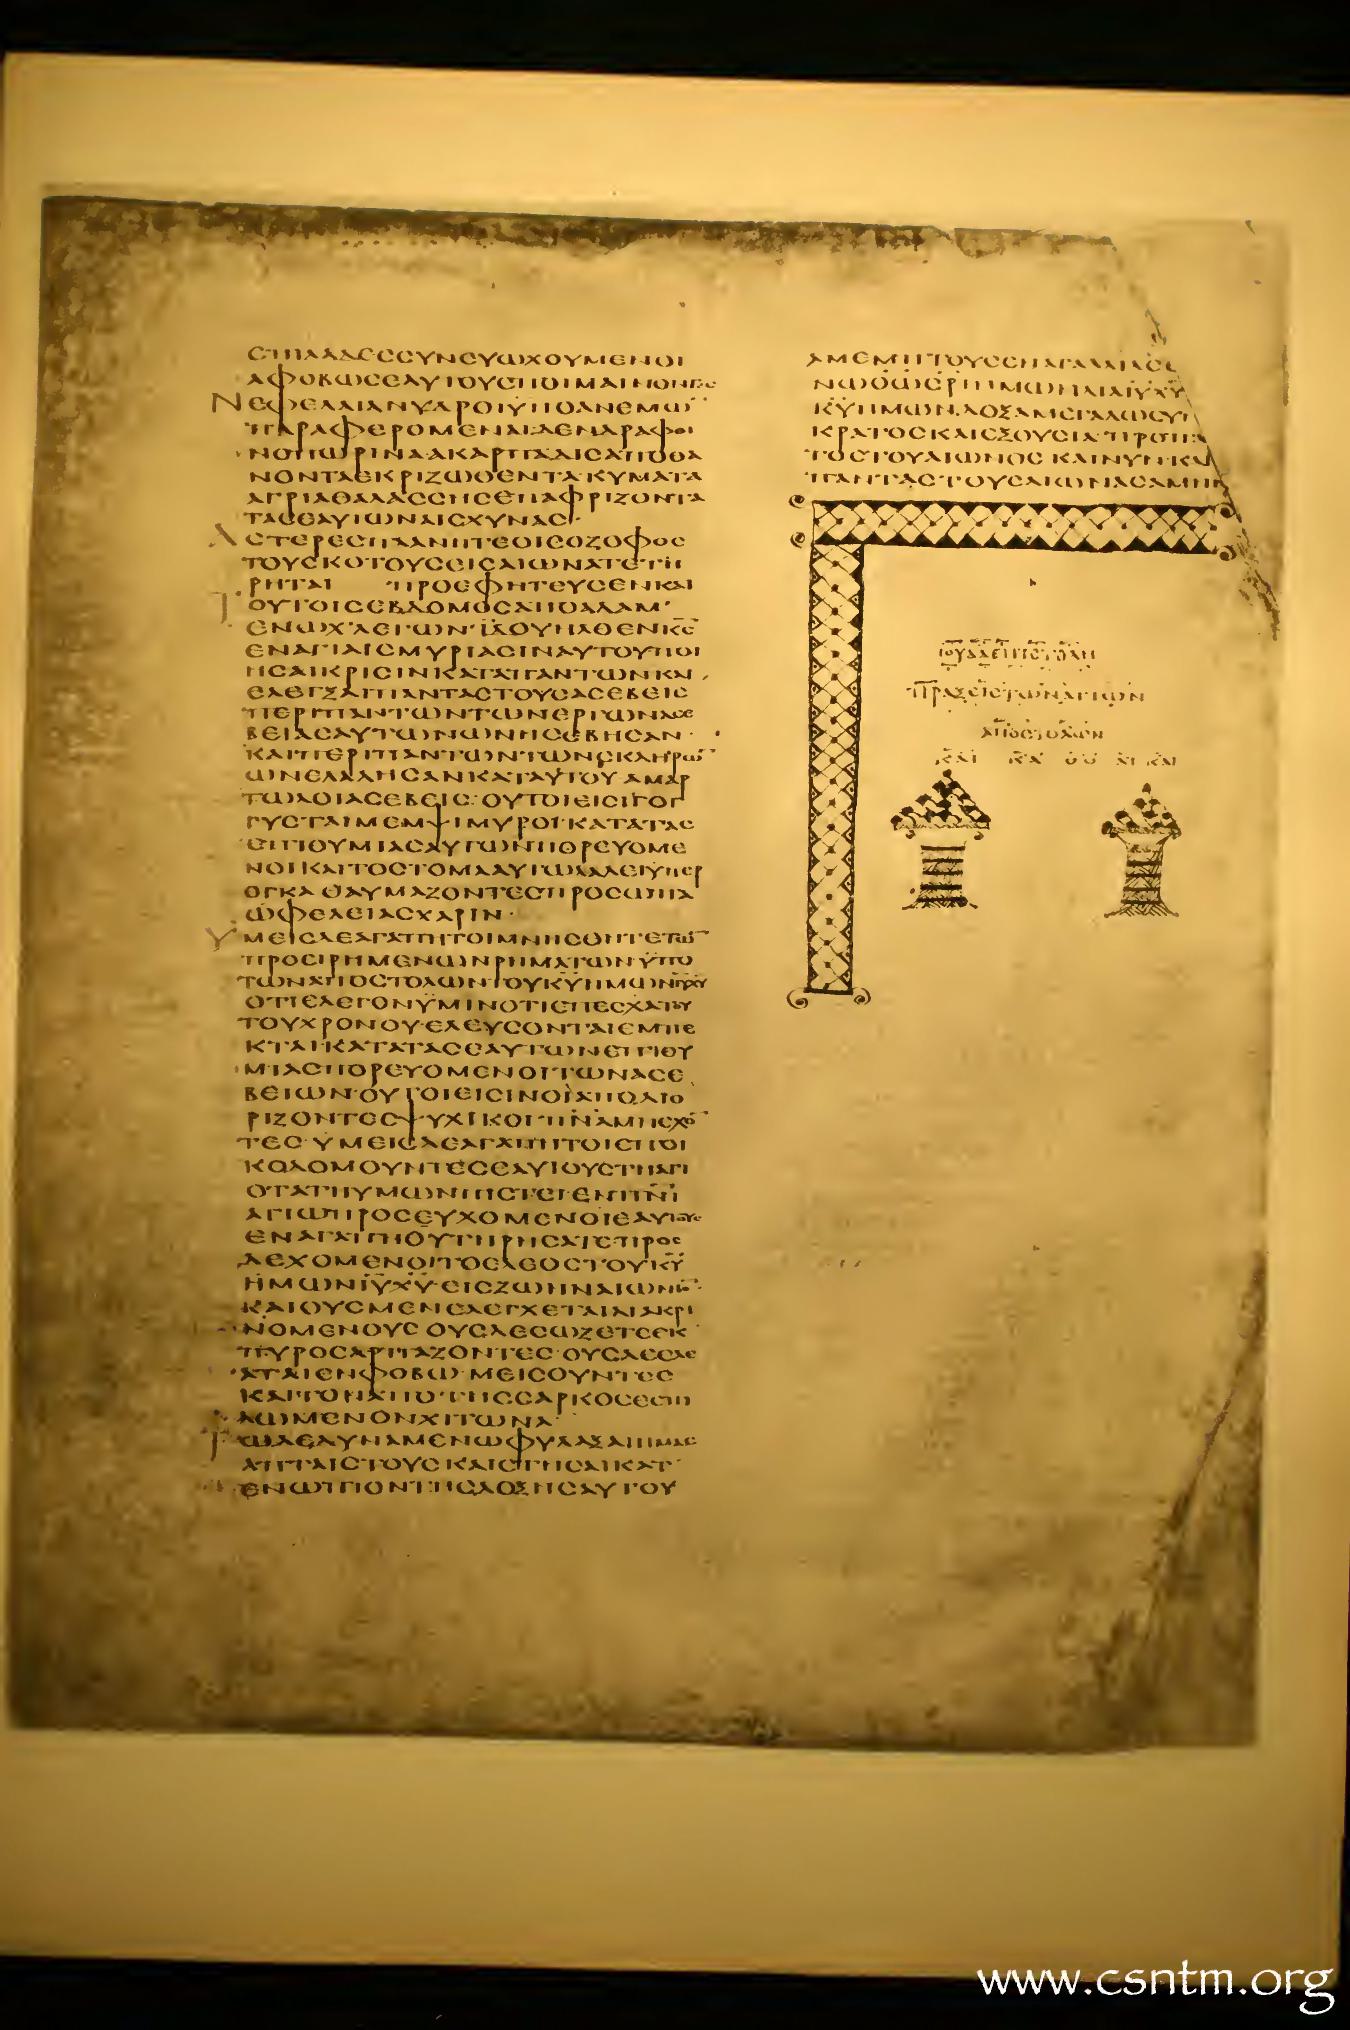 ΑΦΟΒΩΣΕΑΥΤΟΥΣΠΟΙΜΑΙΝΟΝΤΕΣ
ΝΕΦΕΛΑΙΑΝΥΔΡΟΙΫΠΟΑΝΕΜΩ̄
ΠΑΡΑΦΕΡΟΜΕΝΑΙ·ΔΕΝΔΡΑΦΘΙ
ΝΟΠΩΡΙΝΑ·ΑΚΑΡΠΑΔΙΣΑΠΟΘΑ
ΝΟΝΤΑΕΚΡΙΖΩΘΕΝΤΑ·ΚΥΜΑΤΑ
ΑΓΡΙΑΘΑΛΑΣΣΗΣΕΠΑΦΡΙΖΟΝΤΑ
ΤΑΣΕΑΥΤΩΝΑΙΣΧΥΝΑΣ·
ΑΣΤΕΡΕΣΠΛΑΝΗΤΕΟΙΣΟΖΟΦΟΣ
ΤΟΥΣΚΟΤΟΥΣΕΙΣΑΙΩΝΑΤΕΤΗ
ΡΗΤΑΙ ΠΡΟΕΦΗΤΕΥΣΕΝΚΑΙ
ΤΟΥΤΟΙΣΕΒΔΟΜΟΣΑΠΟΑΔΑΜ
ΕΝΩΧΛΕΓΩΝ·ΪΔΟΥΗΛΘΕΝΚ̄Σ̄
ΕΝΑΓΙΑΙΣΜΥΡΙΑΣΙΝΑΥΤΟΥΠΟΙ
ΗΣΑΙΚΡΙΣΙΝΚΑΤΑΠΑΝΤΩΝΚΑΙ
ΕΛΕΓΞΑΙΠΑΝΤΑΣΤΟΥΣΑΣΕΒΕΙΣ
ΠΕΡΙΠΑΝΤΩΝΤΩΝΕΡΓΩΝΑΣΕ
ΒΕΙΑΣΑΥΤΩΝΩΝΗΣΕΒΗΣΑΝ·
ΚΑΙΠΕΡΙΠΑΝΤΩΝΤΩΝΣΚΛΗΡΩ̄
ΩΝΕΛΑΛΗΣΑΝΚΑΤΑΥΤΟΥ·ΑΜΑΡ
ΤΩΛΟΙΑΣΕΒΕΙΣ·ΟΥΤΟΙΕΙΣΙΓΟΓ
ΓΥΣΤΑΙΜΕΜΨΙΜΥΡΟΙ·ΚΑΤΑΤΑΣ
ΕΠΙΘΥΜΙΑΣΑΥΤΩΝΠΟΡΕΥΟΜΕ
ΝΟΙΚΑΙΤΟΣΤΟΜΑΑΥΤΩΛΑΛΕΙΥΠΕΡ
ΟΓΚΑΘΑΥΜΑΖΟΝΤΕΣΠΡΟΣΩΠΑ
ΩΦΕΛΕΙΑΣΧΑΡΙΝ·
ΥΜΕΙΣΔΕΑΓΑΠΗΤΟΙΜΝΗΣΘΗΤΕΤΩ̄
ΠΡΟΕΙΡΗΜΕΝΩΝΡΗΜΑΤΩΝΫΠΟ
ΤΩΝΑΠΟΣΤΟΛΩΝΤΟΥΚ̄Ῡ̄ΗΜΩΝῙῩ̄Χ̄Ῡ̄
ΟΤΙΕΛΕΓΟΝΫΜΙΝΟΤΙΕΠΕΣΧΑΤΟΥ
ΤΟΥΧΡΟΝΟΥ·ΕΛΕΥΣΟΝΤΑΙΕΜΠΕ
ΚΤΑΙ·ΚΑΤΑΤΑΣΕΑΥΤΩΝΕΠΙΘΥ
ΜΙΑΣΠΟΡΕΥΟΜΕΝΟΙΤΩΝΑΣΕ
ΒΕΙΩΝ·ΟΥΤΟΙΕΙΣΙΝΟΪΑΠΟΔΙΟ
ΡΙΖΟΝΤΕΣ·ΨΥΧΙΚΟΙ·Π̄Ν̄Ᾱ̄ΜΗΕΧΟ̄
ΤΕΣ·ΥΜΕΙΣΔΕΑΓΑΠΗΤΟΙΕΠΟΙ
ΚΟΔΟΜΟΥΝΤΕΣΕΑΥΤΟΥΣΤΗΑΓΙ
ΟΤΑΤΗΥΜΩΝΠΙΣΤΕΙ·ΕΝΠ̄Ν̄Ῑ̄
ΑΓΙΩΠΡΟΣΕΥΧΟΜΕΝΟΙΕΑΥΤΟΥΣ
ΕΝΑΓΑΠΗΘΥΤΗΡΗΣΑΤΕ·ΠΡΟΣ
ΔΕΧΟΜΕΝΟΙΤΟΕΛΕΟΣΤΟΥΚ̄Ῡ̄
ΗΜΩΝῙῩ̄Χ̄Ῡ̄·ΕΙΣΖΩΗΝΑΙΩΝΙΟ̄·
ΚΑΙΟΥΣΜΕΝΕΛΕΓΧΕΤΑΙΔΙΑΚΡΙ
ΝΟΜΕΝΟΥΣ ΟΥΣΔΕΣΩΖΕΤΕΕΚ
ΠΥΡΟΣΑΡΠΑΖΟΝΤΕΣ·ΟΥΣΔΕΕΛΕ
ΑΤΑΙΕΝΦΟΒΩ·ΜΕΙΣΟΥΝΤΕΣ
ΚΑΙΤΟΝΑΠΟΤΗΣΣΑΡΚΟΣΕΣΠΙ
ΛΩΜΕΝΟΝΧΙΤΩΝΑ·
ΤΩΔΕΔΥΝΑΜΕΝΩΦΥΛΑΞΑΙΗΜΑΣ
ΑΠΤΑΙΣΤΟΥΣΚΑΙΣΤΗΣΑΙΚΑΤ
ΕΝΩΠΙΟΝΤΗΣΔΟΞΗΣΑΥΤΟΥ
ΑΜΕΜΠΤΟΥΣΕΝΑΓΑΛΛΙΑΣΕΙ
Κ̄Ῡ̄ΗΜΩΝ·ΔΟΞΑΜΕΓΑΛΩΣΥΝ
ΚΡΑΤΟΣΚΑΙΕΞΟΥΣΙΑ·ΠΡΟΠΑ
ΤΟΣΤΟΥΑΙΩΝΟΣ ΚΑΙΝΥΝ·ΚΑΙ
ΠΑΝΤΑΣΤΟΥΣΑΙΩΝΑΣΑΜΗΝ
ΙΟΥΔΑΕΠΙΣΤΟΛΗ
ΠΡΑΞΕΙΣΤΩΝΑΓΙΩΝ
ΑΠΟΣΤΟΛΩΝ
www.csntm.org